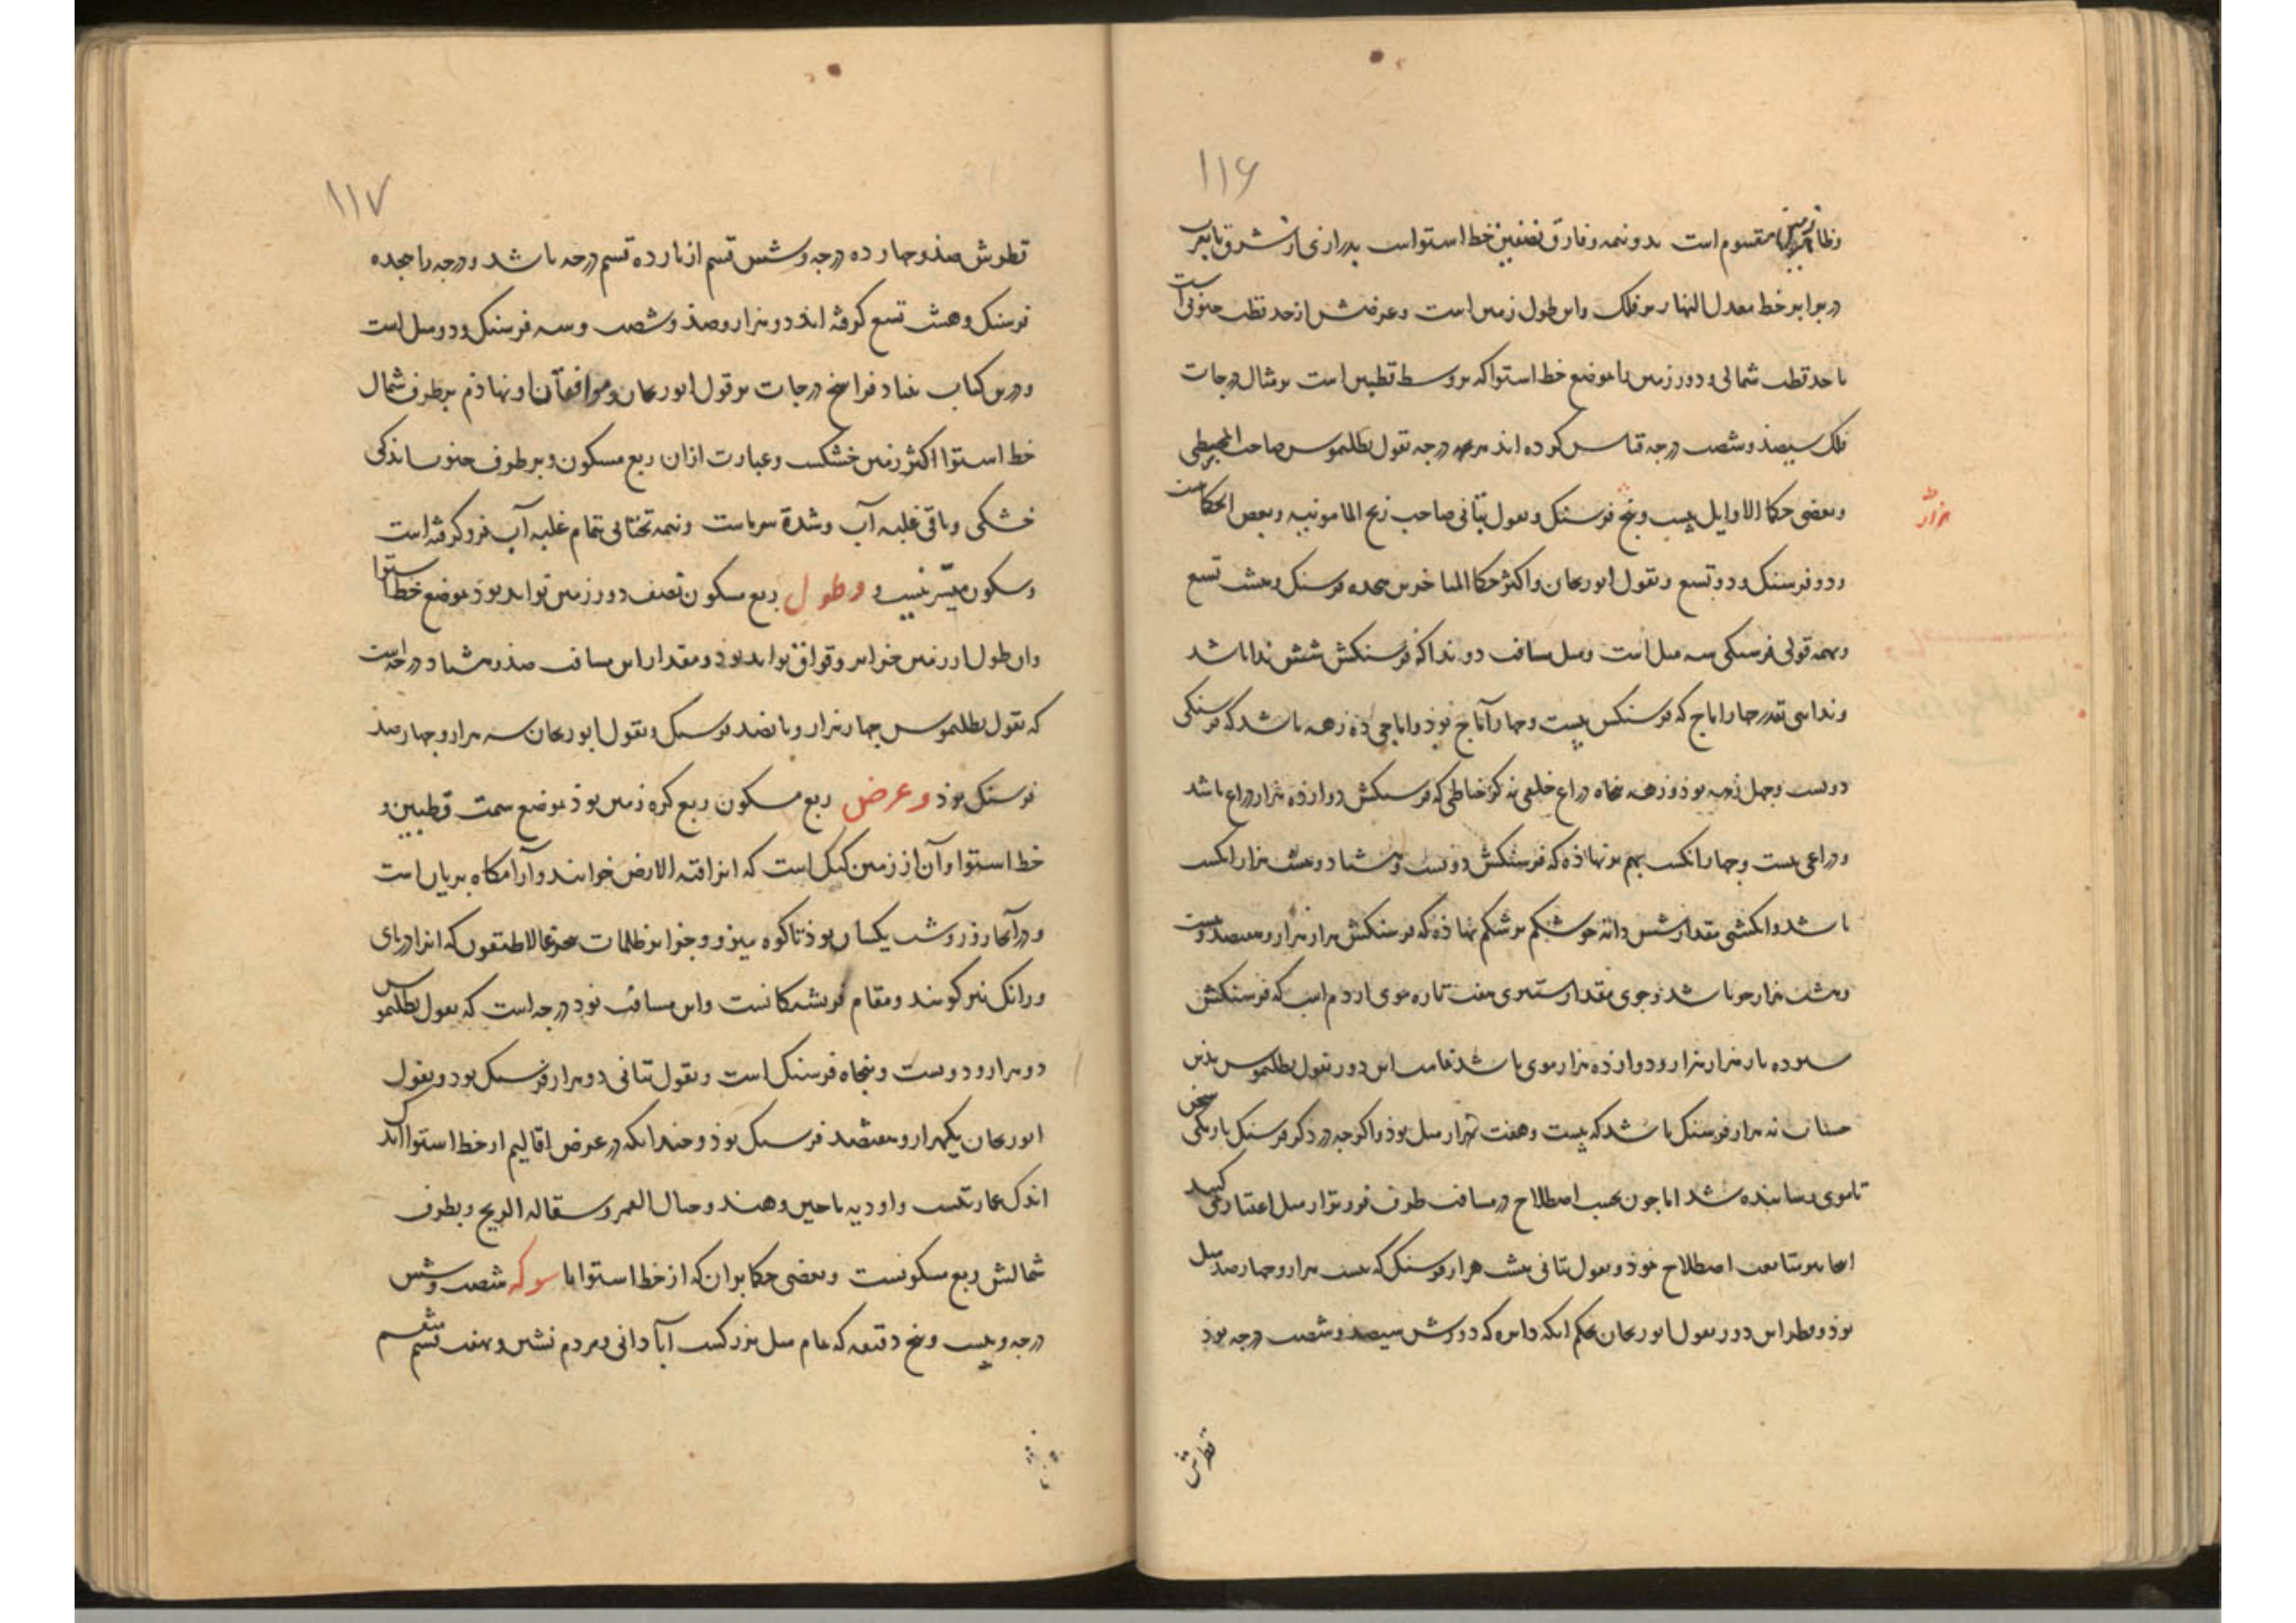 ۱۱۶
زمین مقسوم است بدو نیمه و فارق نصفین خط استواست بدرازی از شرق تا بغرب
در برابر خط معدل النهار بر فلک و این طول زمین است و عرضش از حد قطب جنوبی است
تا حد قطب شمالی و دور زمین با موضع خط استوا که بر وسط قطبین است بر مثال درجات
فلک سیصد و شصت درجه قیاس کرده اند هر درجه بقول بطلمیوس صاحب المجسطی
و بعضی حکما الاوایل بیست و پنج فرسنگ و بقول بتانی صاحب زیج المامونیه و بعض الحکما بیست
و دو فرسنگ و دو تسع و بقول ابوریحان و اکثر حکما المتاخرین هجده فرسنگ و هشت تسع
و بهمه قولی فرسنگی سه میل است و میل مسافت دو ندا که فرسنگش شش ندا باشد
و ندایی بقدر چهار اماج که فرسنگش بیست و چهار آماج بوذ و اماجی ده زهه باشد که فرسنگی
دویست و چهل زهه بوذ و زهه پنجاه ذراع خلقی نه گز خیاطی که فرسنگش دوازده هزار ذراع باشد
و ذراعی بیست و چهار انگشت بهم بر نهاذه که فرسنگش دویست و هشتاد و هشت هزار انگشت
باشد و انگشتی بقدار شش دانه جو شکم بر شکم نهاذه که فرسنگش هزار هزار و هفتصد و بیست
و هشت هزار جو باشد و جوی بقدار ستبری هفت تاره موی از دم اسب که فرسنگش
دوازده بار هزار هزار و دوازده هزار موی باشد تمامت این دور بقول بطلمیوس بذین
حساب نه هزار فرسنگ باشد که بیست و هفت هزار میل بوذ و اگر چه در ذکر فرسنگ باریکی سخن
تا موی رسانیده شد اما چون بحسب اصطلاح در مسافت طرف فروتر از میل اعتبار نمی کنند
اینجا بر متابعت اصطلاح بوذ و بقول بتانی هشت هزار فرسنگ که بیست هزار و چهارصد میل
بوذ و قطر این دور بقول ابوریحان بحکم آنکه دایره که دورش سیصد و شصت درجه بوذ
قطرش
۱۱۷
قطرش صد و چهارده درجه و شش قسم از یازده قسم درجه باشد و درجه را هجده
فرسنگ و هشت تسع گرفته اند دو هزار و صد و شصت و سه فرسنگ و دو میل است
و درین کتاب بنیاد فراسخ درجات بر قول ابوریحان و موافقان او نهاذم بر طرف شمال
خط استوا اکثر زمین خشکست و عبارت ازان ربع مسکون و بر طرف جنوب اندکی
خشکی و باقی غلبه آب و شدة سرماست و نیمه تحتانی تمام غلبه آب فرو گرفته است
و سکون میسر نیست و وطول ربع مسکون نصف دور زمین تواند بوذ بموضع خط استوا
و این مسافت صد و هشتاد درجه است
که بقول بطلمیوس چهار هزار و پانصد فرسنگ و بقول ابوریحان سه هزار و چهارصد
فرسنگ بوذ وعرض ربع مسکون ربع کره زمین بوذ بموضع سمت قطبین و
خط استوا و آن از زمین کنک است که انرا قبة الارض خوانند و آرامگاه پریان است
و در آنجا روز و شب یکسان بوذ تا کوه و جزایر ظلمات که انرا دریای
ورانک نیز گویند و مقام فریشتگانست و این مسافت نود درجه است که بقول بطلمیوس
دو هزار و دویست و پنجاه فرسنگ است و بقول بتانی دو هزار فرسنگ بود و بقول
ابوریحان یکهزار و هفتصد فرسنگ بوذ و چندانکه در عرض اقالیم از خط استوا اند
اندک عمارتست و اودیه ماچین و هند و جبال القمر و سفاله الزنج و بطرف
شمالش ربع مسکونست و بعضی حکما بران که از خط استوا با سوکه شصت و شش
درجه و بیست و پنج دقیقه که تمام میل بزرگست آبادانی و مردم نشین و بهفت قسم منقسم